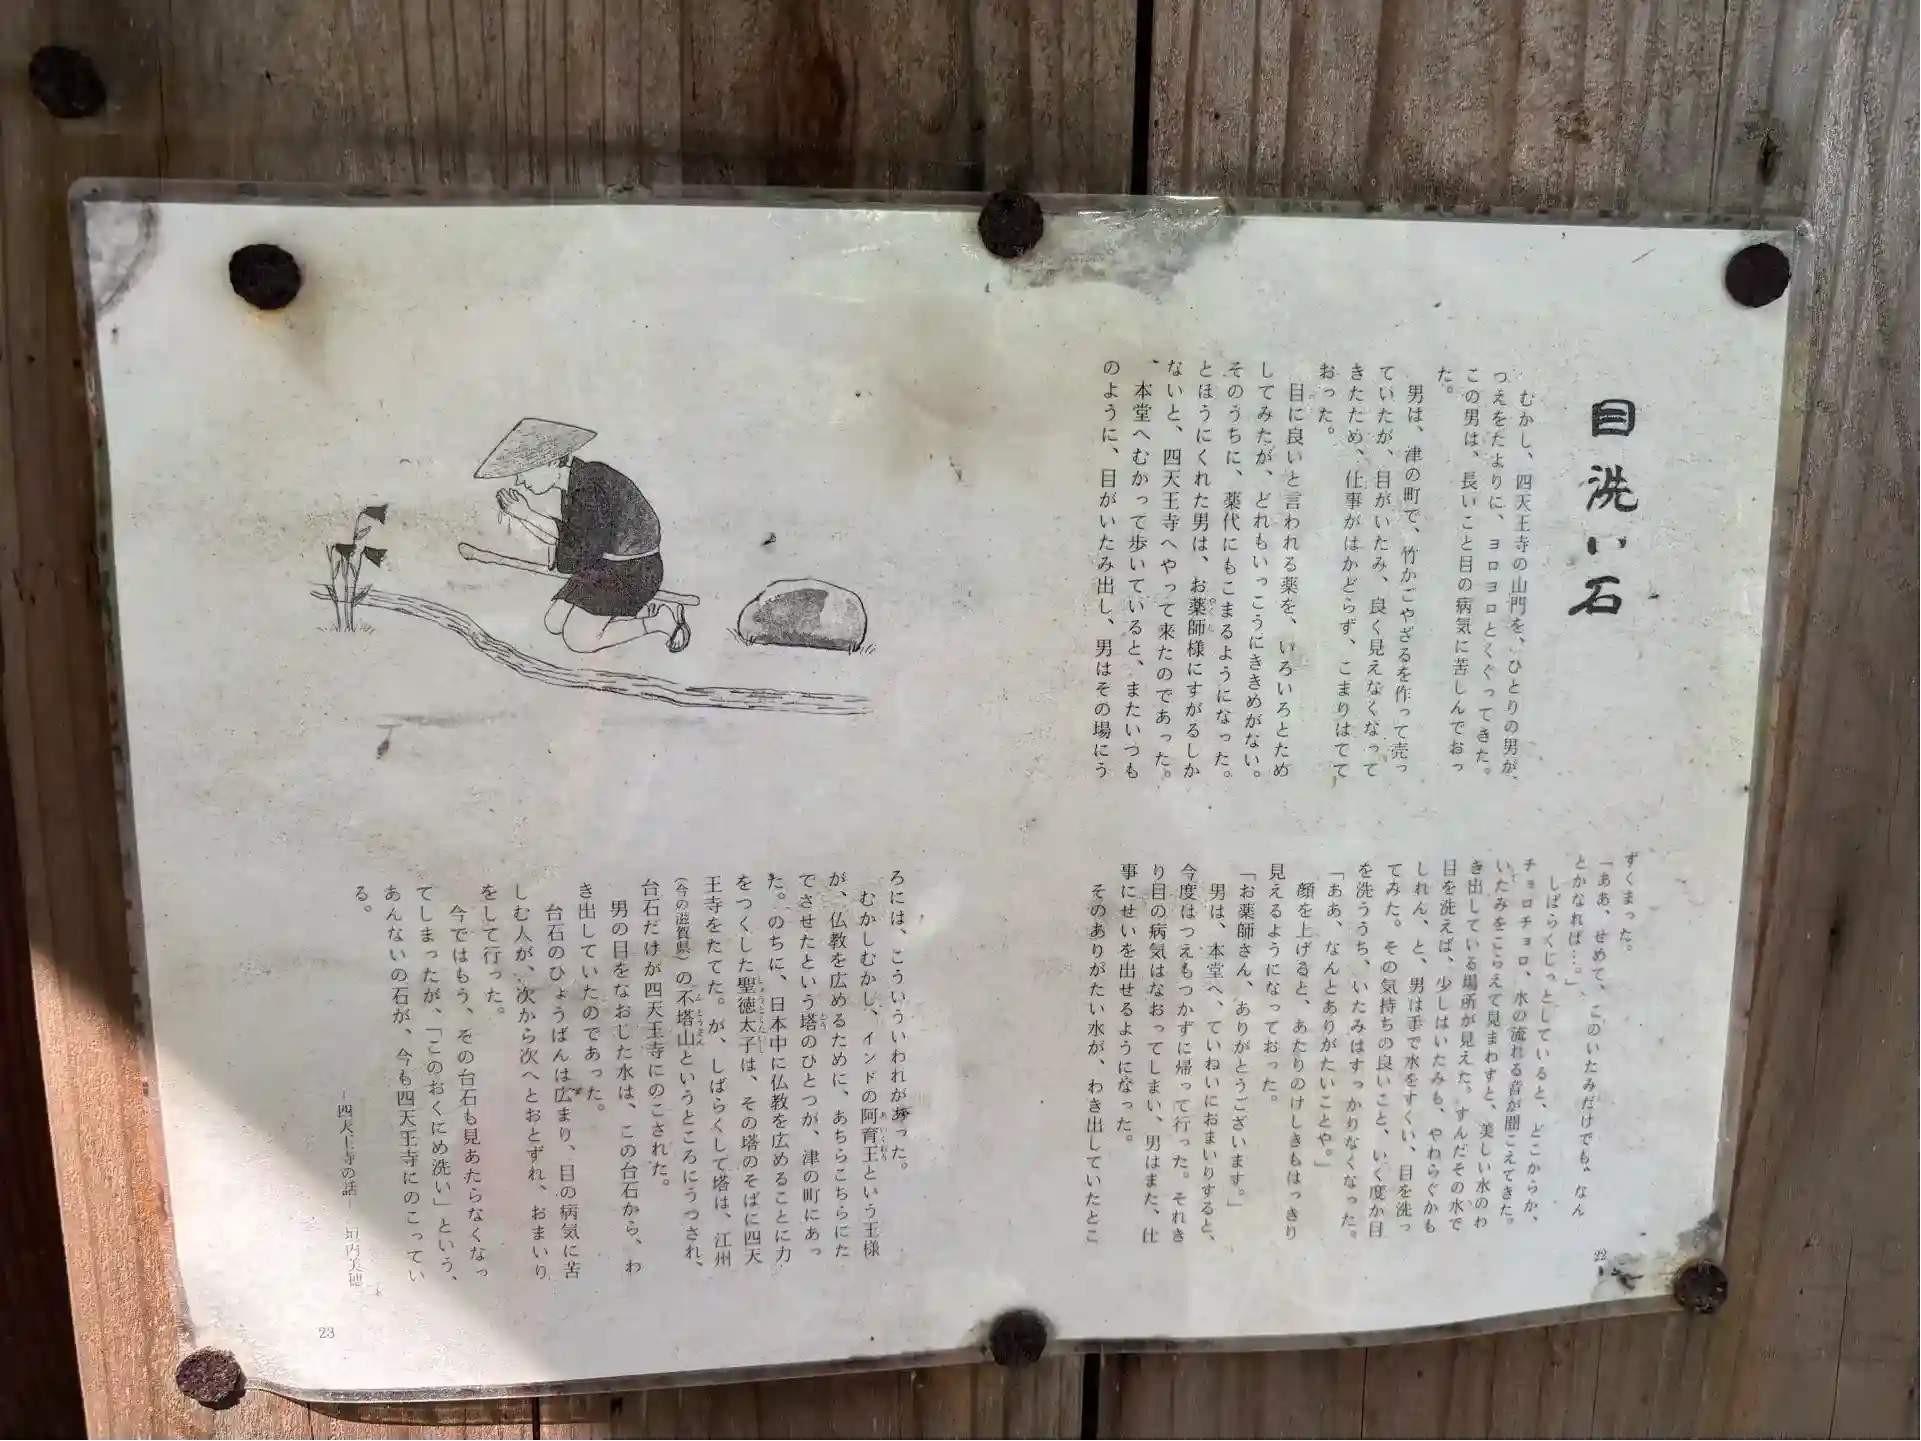 目洗い石
むかし、四天王寺の山門を、ひとりの男が、
つえをたよりに、ヨロヨロとくぐってきた。
この男は、長いこと目の病気に苦しんでおっ
た。
男は、津の町で、竹かごやざるを作って売っ
ていたが、目がいたみ、良く見えなくなって
きたため、仕事がはかどらず、こまりはてて
おった。
目に良いと言われる薬を、いろいろとため
してみたが、どれもいっこうにききめがない。
そのうちに、薬代にもこまるようになった。
とほうにくれた男は、お薬師様にすがるしか
ないと、四天王寺へやって来たのであった。
本堂へむかって歩いていると、またいつも
のように、目がいたみ出し、男はその場にう
ずくまった。
「ああ、せめて、このいたみだけでも、なん
とかなれば…。」
しばらくじっとしていると、どこからか、
チョロチョロ、水の流れる音が聞こえてきた。
いたみをこらえて見まわすと、美しい水のわ
き出している場所が見えた。すんだその水で
目を洗えば、少しはいたみも、やわらぐかも
しれん、と、男は手で水をすくい、目を洗っ
てみた。その気持ちの良いこと、いく度か目
を洗ううち、いたみはすっかりなくなった。
「ああ、なんとありがたいことや。」
顔を上げると、あたりのけしきもはっきり
見えるようになっておった。
「お薬師さん、ありがとうございます。」
男は、本堂へ、ていねいにおまいりすると、
今度はつえもつかずに帰って行った。それき
り目の病気はなおってしまい、男はまた、仕
事にせいを出せるようになった。
そのありがたい水が、わき出していたとこ
22
ろには、こういういわれがあった。
むかしむかし、インドの阿育王という王様
が、仏教を広めるために、あちらこちらにた
てさせたという塔のひとつが、津の町にあっ
た。のちに、日本中に仏教を広めることに力
をつくした聖徳太子は、その塔のそばに四天
王寺をたてた。が、しばらくして塔は、江州
(今の滋賀県)の不塔山というところにうつされ、
台石だけが四天王寺にのこされた。
男の目をなおした水は、この台石から、わ
き出していたのであった。
台石のひょうばんは広まり、目の病気に苦
しむ人が、次から次へとおとずれ、おまいり
をして行った。
今ではもう、その台石も見あたらなくなっ
てしまったが、「このおくにめ洗い」という、
あんないの石が、今も四天王寺にのこってい
る。
―四天王寺の話― 垣内美穂
23